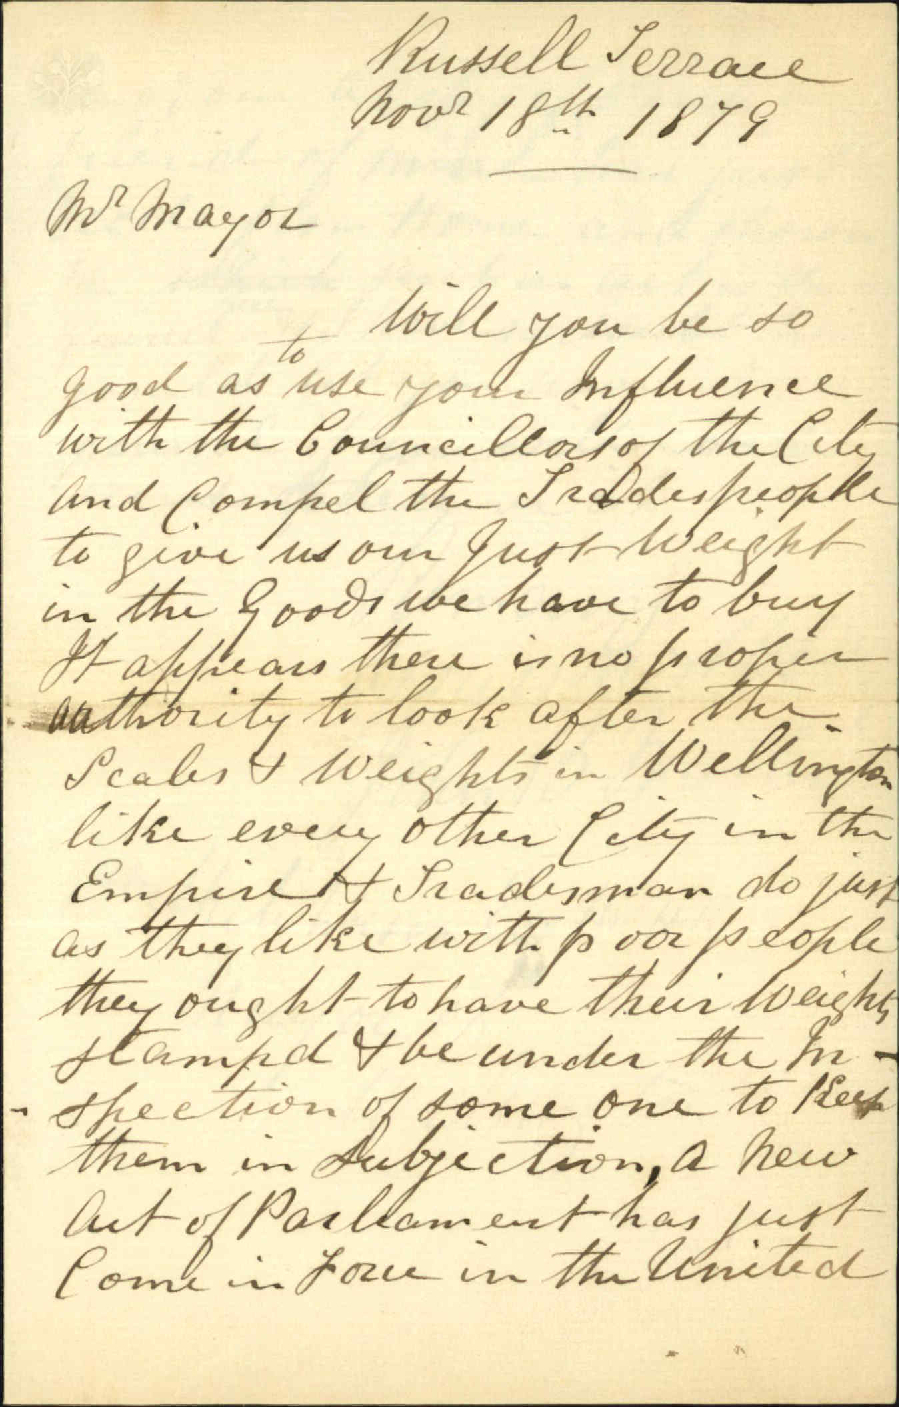 Russell Terrace
Novr 18th 1879
Mr Mayor
Will you be so
to
good as use your Influence
with the Councillors of the City
and Compel the Tradespeople
to give us our Just Weight
in the Goods we have to buy
It appears there is no proper
authority to look after the
Scales & Weights in Wellington
like every other City in the
Empire & Tradesman do just
as they like with poor people
they ought to have their Weights
stampd & be under the In-
spection of some one to Keep
them in Subjection, a New
Act of Parliament has just
Come in Force in the United